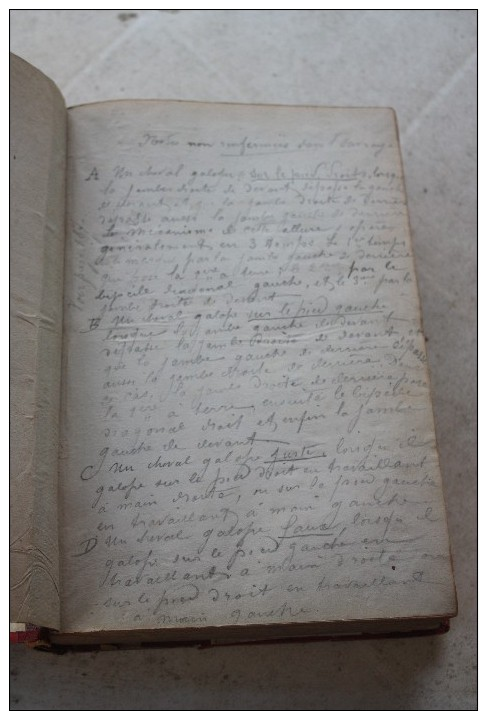 Notes non renfermées dans l'ouvrage
A Un cheval galope sur le pied droit, lorsque
la jambe droite de devant dépasse la gauche
de devant et que la jambe droite de derrière
dépasse aussi la jambe gauche de derrière
le mécanisme de cette allure s'opère
généralement en 3 temps. Le 1er temps
est marqué par la jambe gauche de derrière
que pose la 1ère à terre, le 2ème par le
bipède diagonal gauche, et le 3me par la
jambe droite de devant
B Un cheval galope sur le pied gauche
lorsque la jambe gauche de devant
dépasse la jambe droite de devant et
que la jambe gauche de derrière dépasse
aussi la jambe droite de derrière. Dans
ce cas, la jambe droite de derrière pose
la 1ère à terre, ensuite le bipède
diagonal droit et enfin la jambe
gauche de devant
C Un cheval galope juste, lorsqu'il
galope sur le pied droit en travaillant
à main droite, ou sur le pied gauche
en travaillant à main gauche
D Un cheval galope faux, lorsqu'il
galope sur le pied gauche en
travaillant à main droite ou
sur le pied droit en travaillant
à main gauche